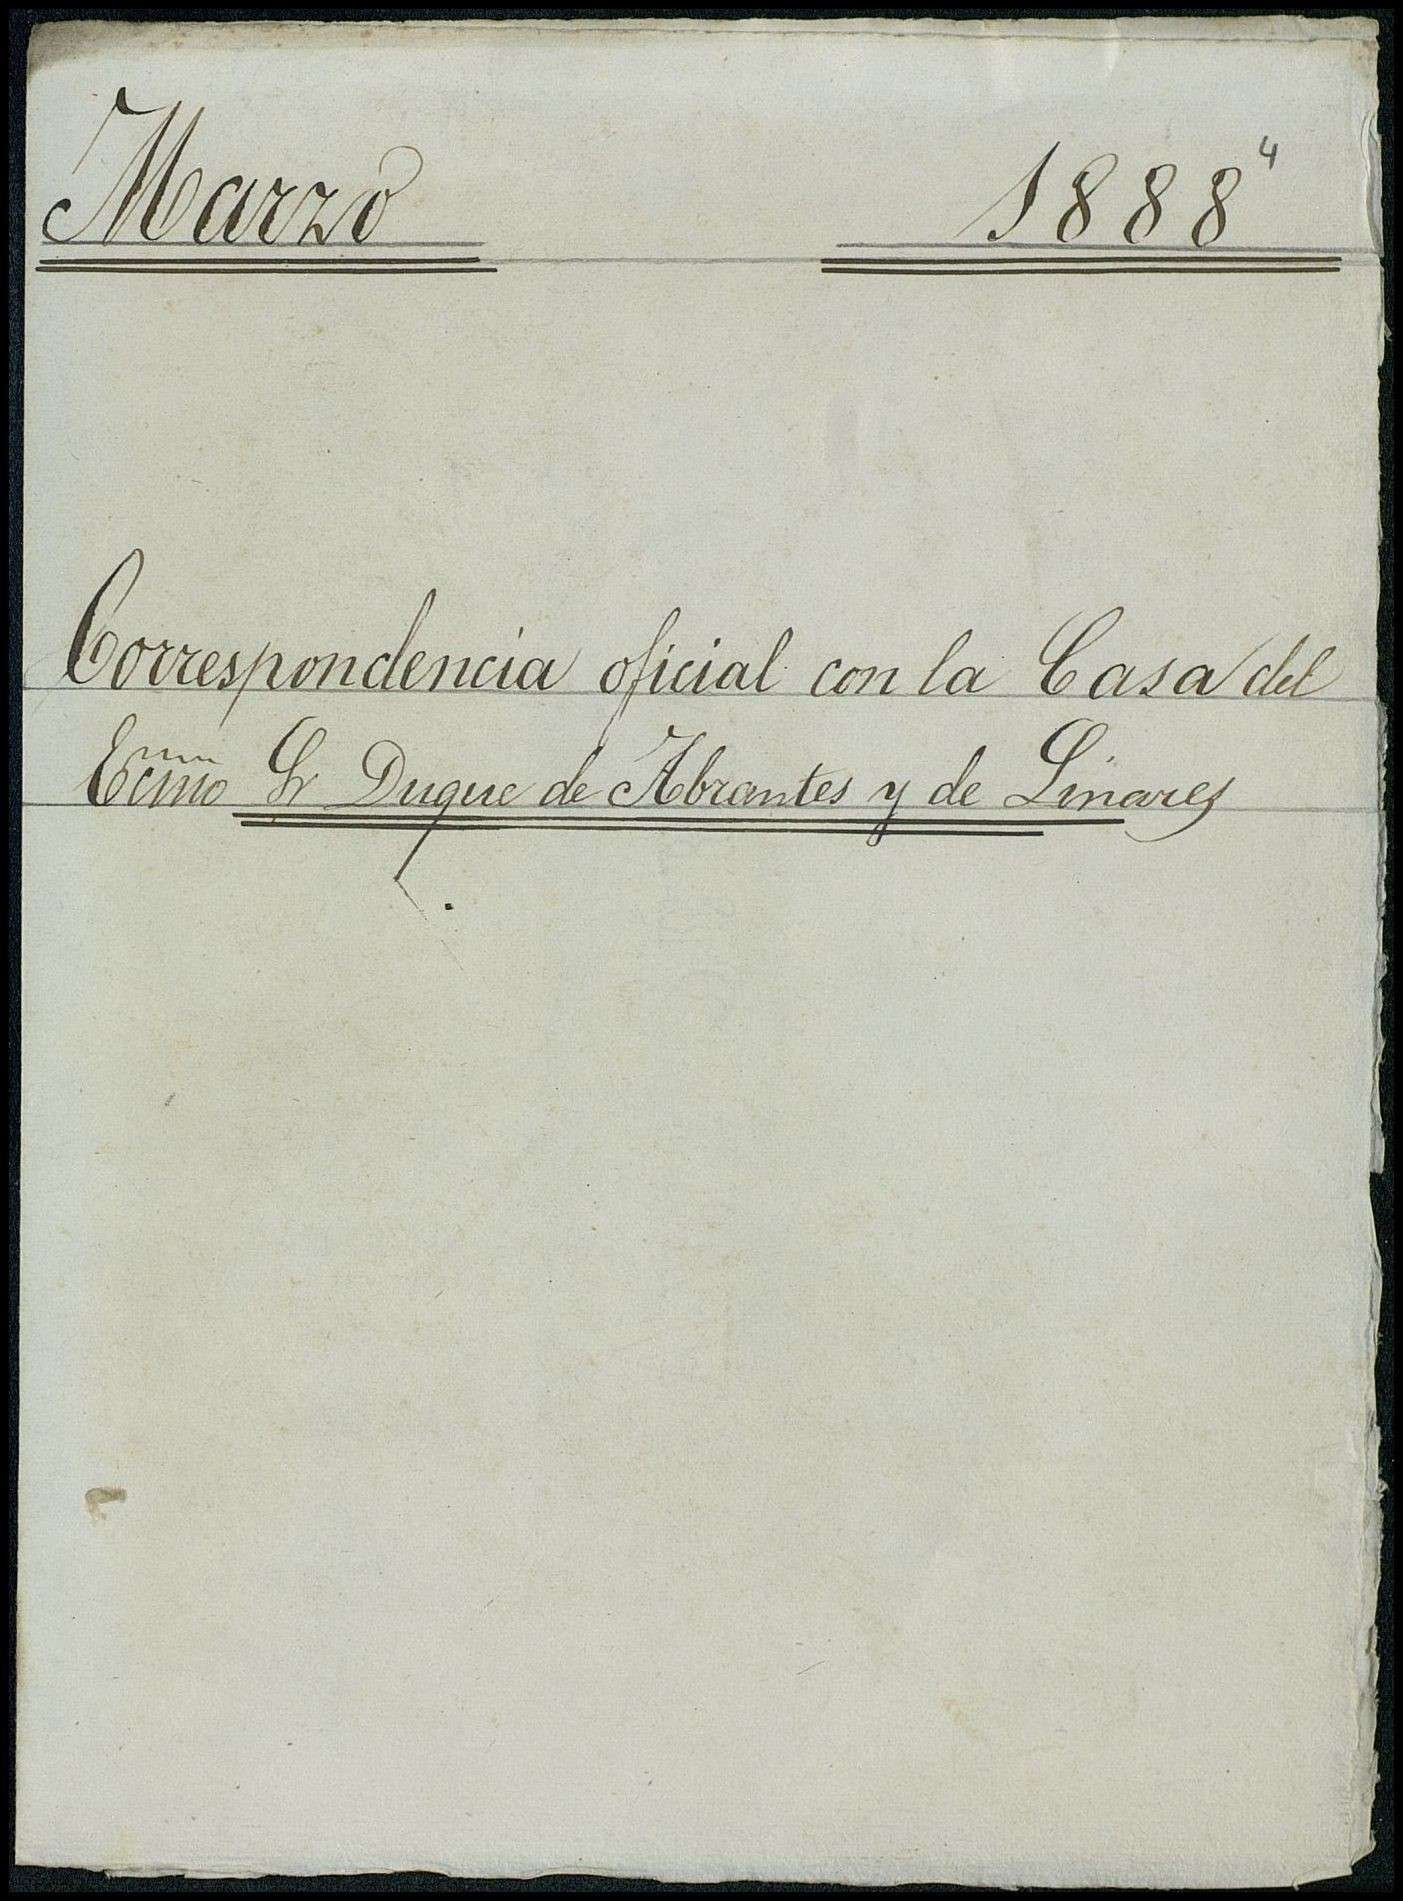 Marzo 1888 4
Correspondencia oficial con la Casa del
Ecmo Sr Duque de Abrantes y de Linares